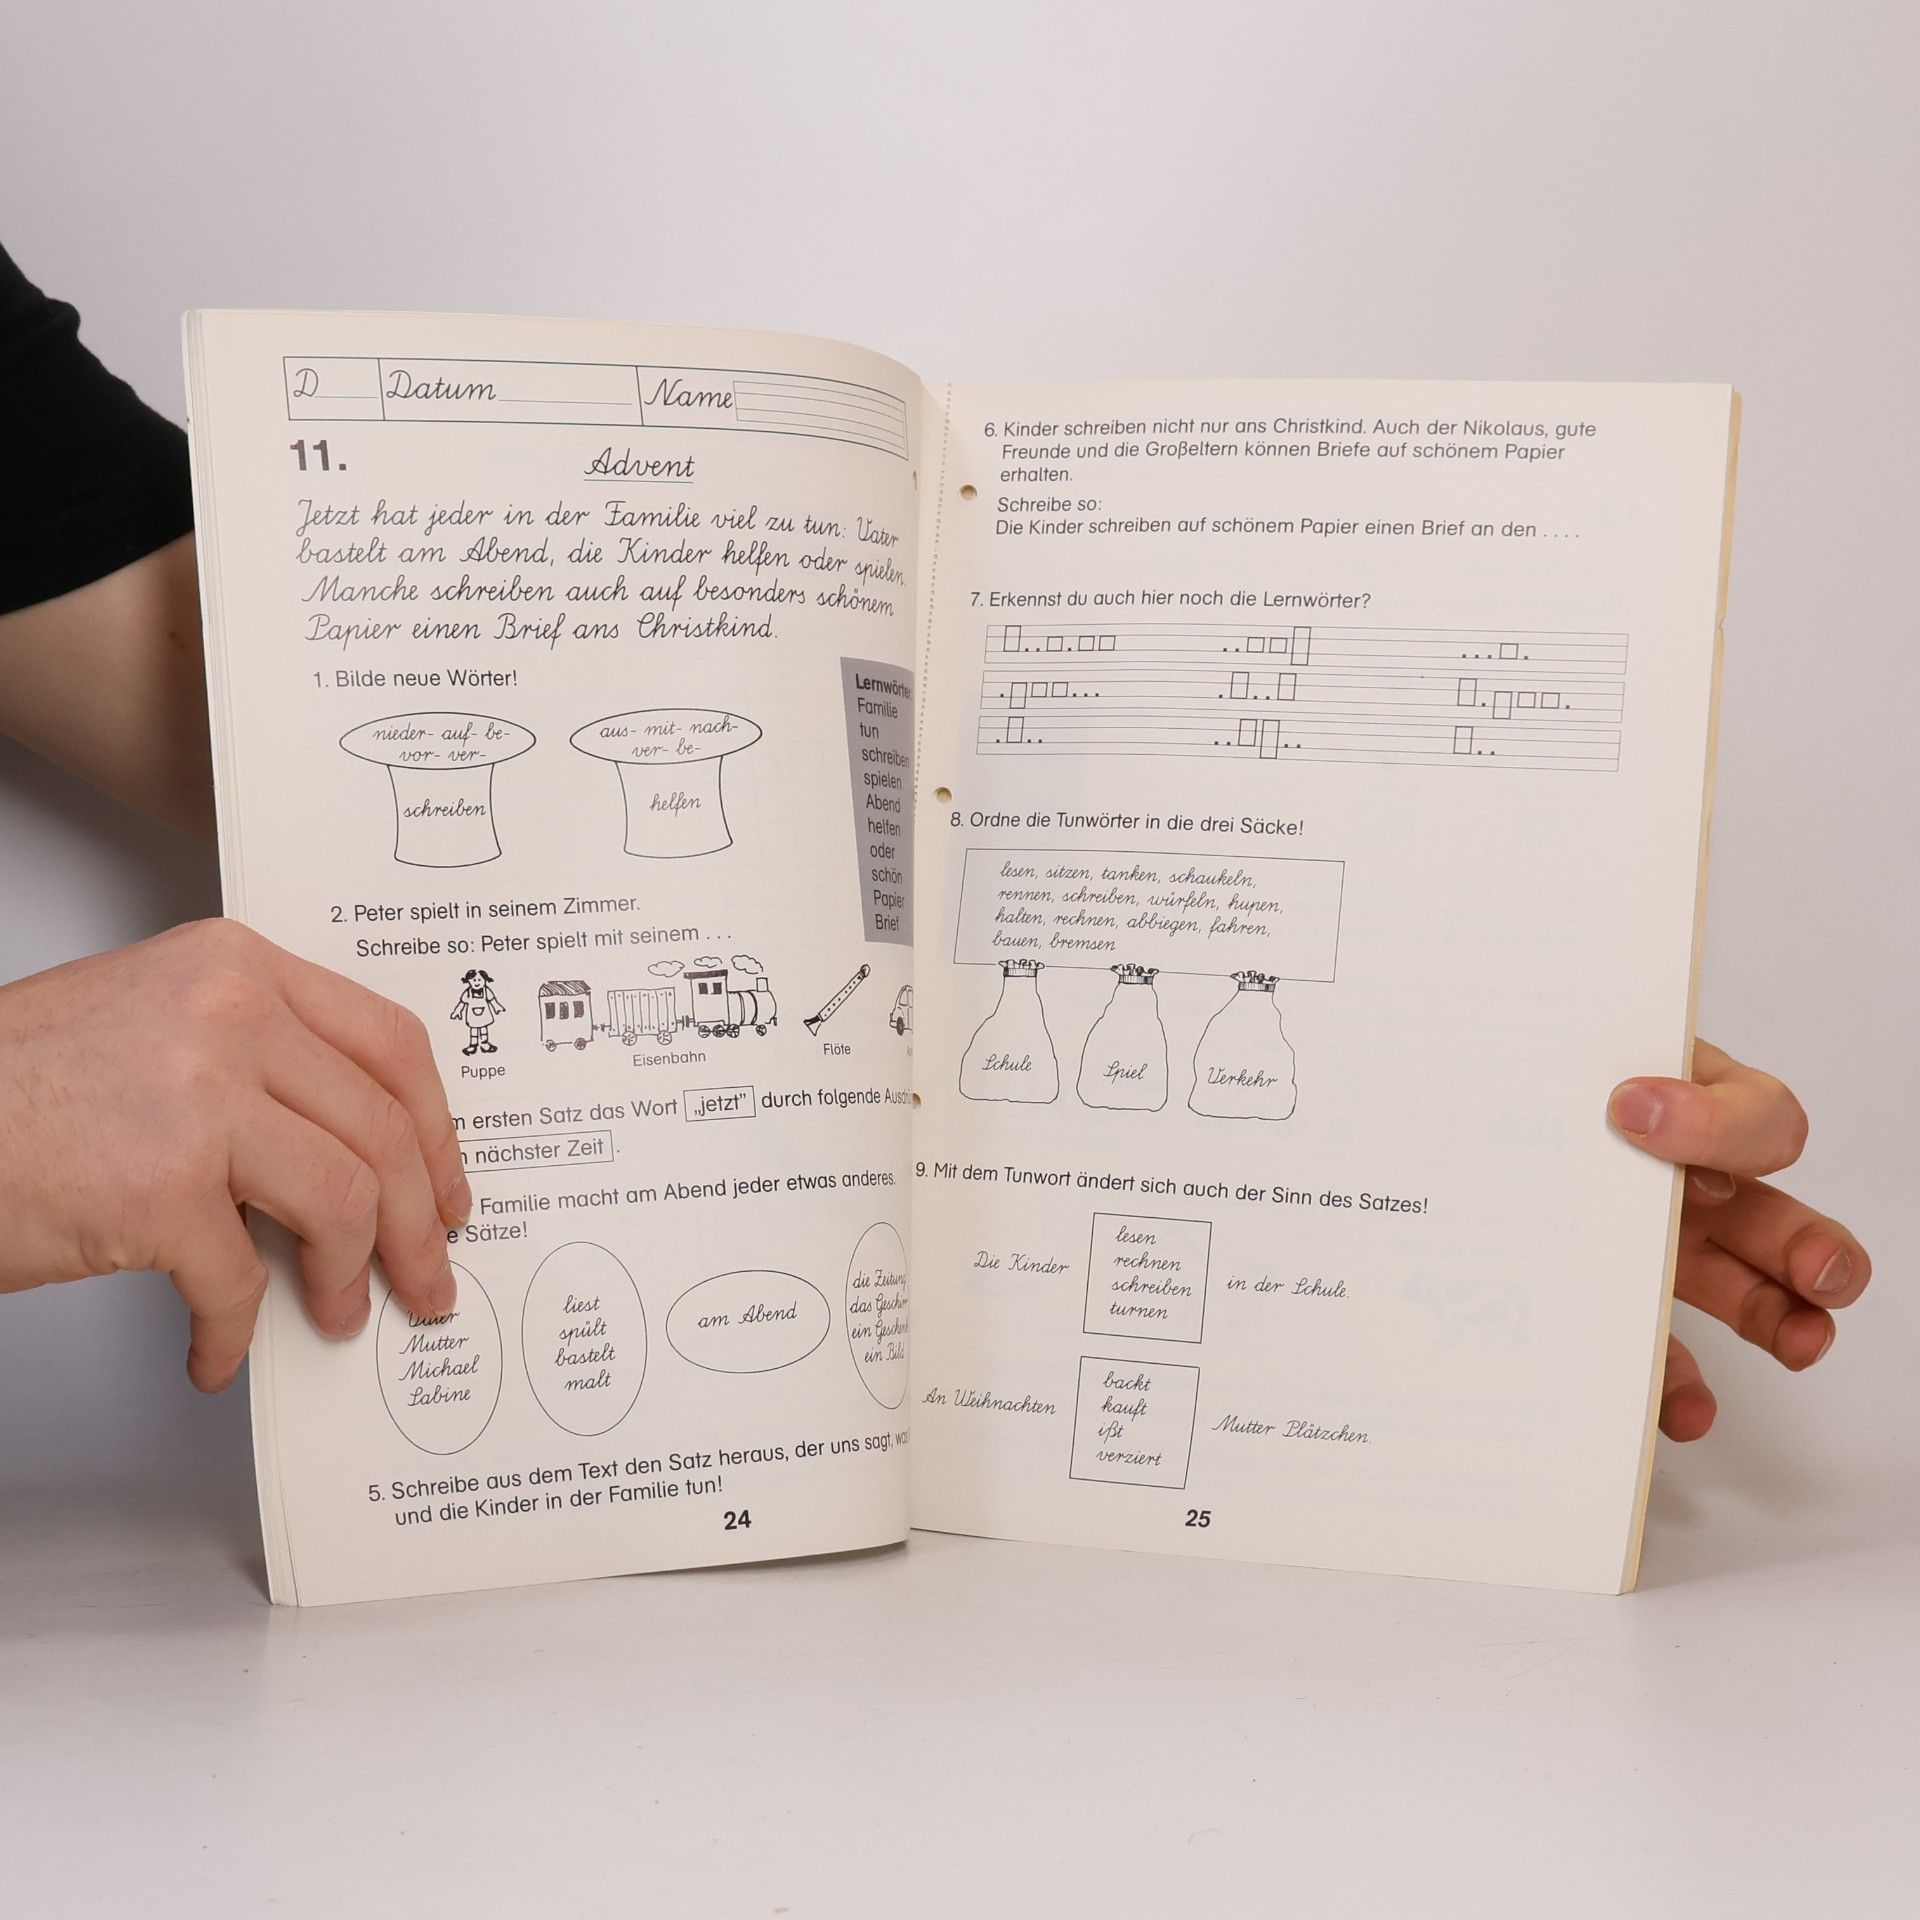 D Datum Name
11.
Advent
Jetzt hat jeder in der Familie viel zu tun: Vater
bastelt am Abend, die Kinder helfen oder spielen.
Manche schreiben auch auf besonders schönem
Papier einen Brief ans Christkind.
1. Bilde neue Wörter!
nieder- auf- be-
vor- ver-
schreiben
aus- mit- nach-
ver- be-
helfen
Lernwörter
Familie
tun
schreiben
spielen
Abend
helfen
oder
schön
Papier
Brief
2. Peter spielt in seinem Zimmer.
Schreibe so: Peter spielt mit seinem . . .
Puppe
Eisenbahn
Flöte
ersten Satz das Wort „jetzt” durch folgende
nächster Zeit .
Familie macht am Abend jeder etwas anderes.
Sätze!
Mutter
Michael
Sabine
liest
spült
bastelt
malt
am Abend
die Zeitung
das Geschirr
ein Geschenk
ein Bild
5. Schreibe aus dem Text den Satz heraus, der uns sagt, was
und die Kinder in der Familie tun!
24
6. Kinder schreiben nicht nur ans Christkind. Auch der Nikolaus, gute
Freunde und die Großeltern können Briefe auf schönem Papier
erhalten.
Schreibe so:
Die Kinder schreiben auf schönem Papier einen Brief an den . . . .
7. Erkennst du auch hier noch die Lernwörter?
8. Ordne die Tunwörter in die drei Säcke!
lesen, sitzen, tanken, schaukeln,
rennen, schreiben, würfeln, hupen,
halten, rechnen, abbiegen, fahren,
bauen, bremsen
Schule
Spiel
Verkehr
9. Mit dem Tunwort ändert sich auch der Sinn des Satzes!
Die Kinder
lesen
rechnen
schreiben
turnen
in der Schule.
An Weihnachten
backt
kauft
ißt
verziert
Mutter Plätzchen.
25